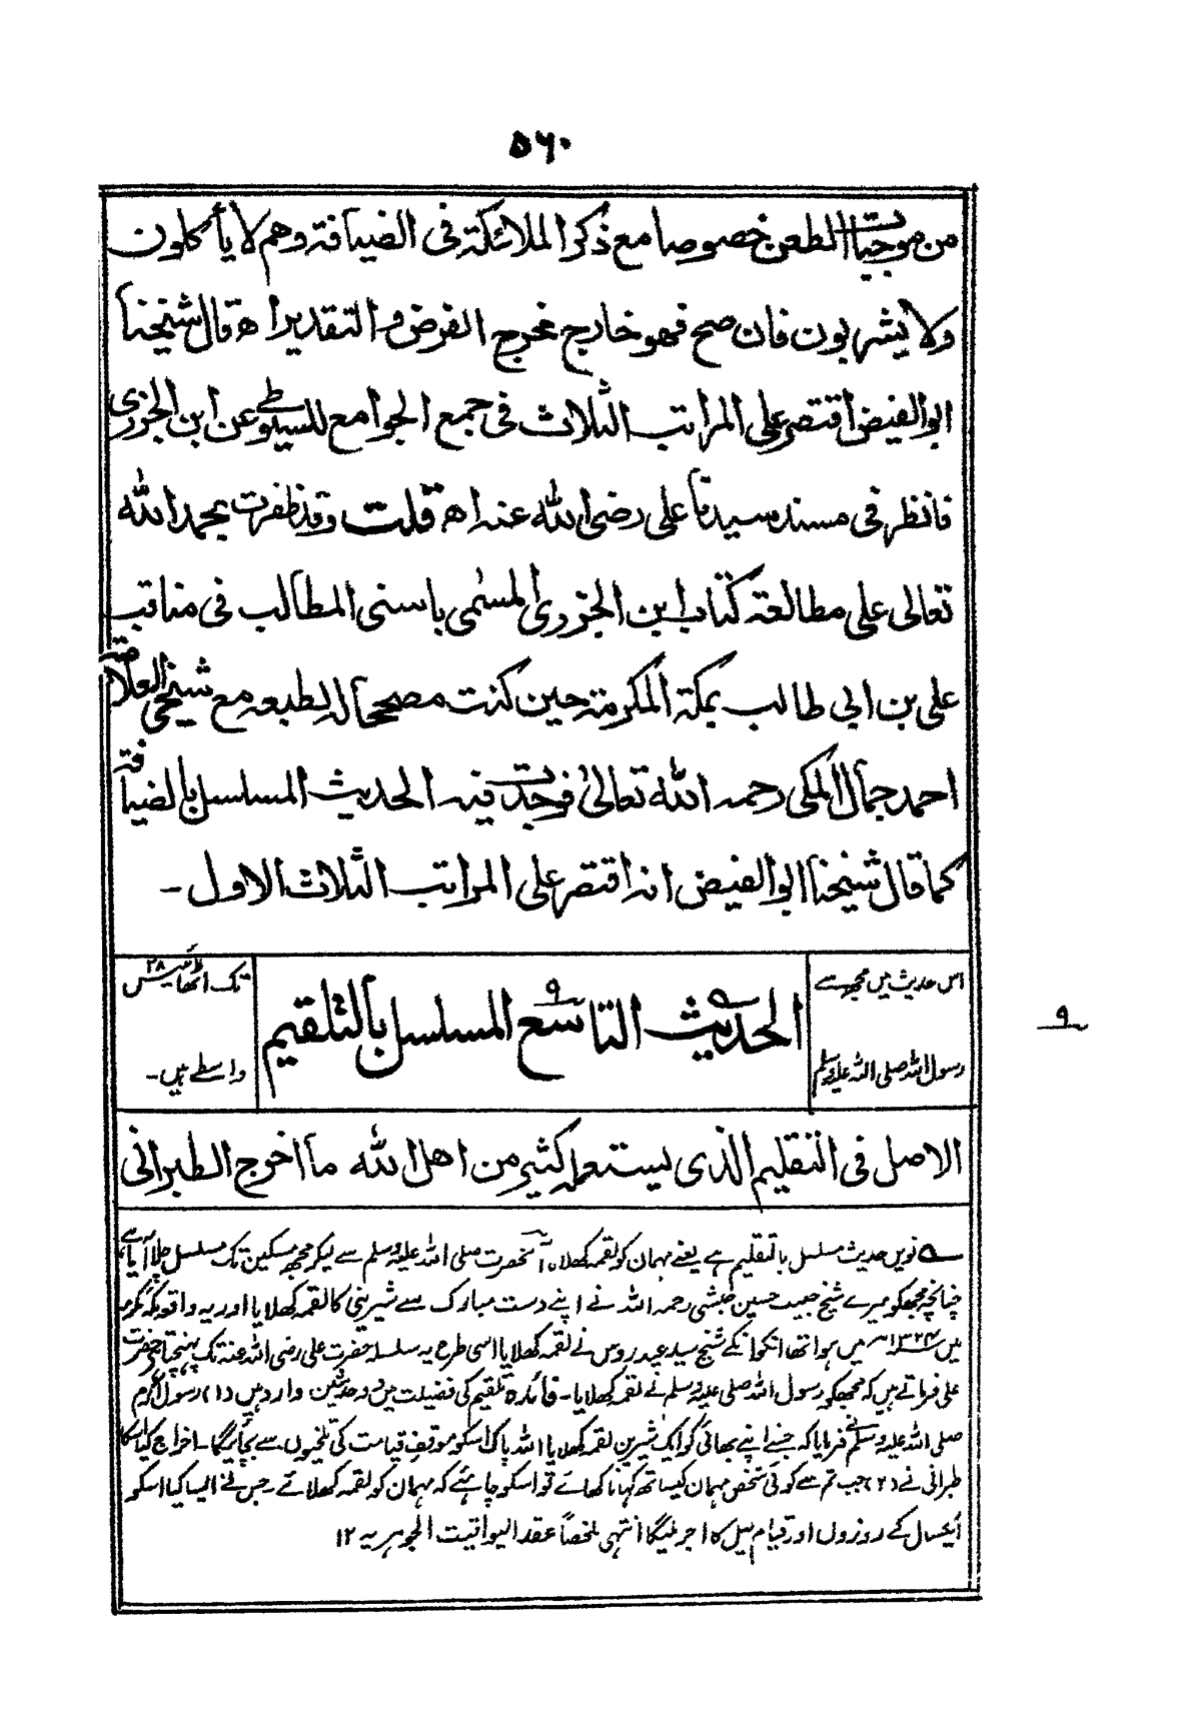 ۵۶۰
من موجبات الطعن خصوصا مع ذكر الملائكة فى الضيافة وهم لا يأكلون
ولا يشربون فان صح فهو خارج مخرج الفرض والتقدير اه قال شيخنا
ابوالفيض اقتصر على المراتب الثلاث فى جمع الجوامع للسيوطى عن ابن الجزرى
فانظر فى مسند سيدنا على رضى الله عنه اه قلت وقد ظفرت بحمد الله
تعالى على مطالعة كتاب ابن الجزرى المسمى باسنى المطالب فى مناقب
على بن ابى طالب بمكة المكرمة حين كنت مصححا له لطبعه مع شيخى العلامة
احمد جمال المكى رحمه الله تعالى فوجدت فيه الحديث المسلسل بالضيافة
كما قال شيخنا ابوالفيض انه اقتصر على المراتب الثلاث الاول ۔
اس حدیث میں مجھ سے
رسول اللہ صلی اللہ علیہ وسلم
الحديث التاسع المسلسل بالتلقيم
۹
تک اٹھائیس ۲۸
واسطے ہیں۔
۹
الاصل فى التقليم الذى يستعمله كثير من اهل الله ما اخرج الطبرانى
نویں حدیث مسلسل بالتقلیم ہے یعنے مہمان کو لقمہ کھلانا آنحضرت صلی اللہ علیہ وسلم سے لیکر مجھ مسکین تک مسلسل چلا آیا ہے
چنانچہ مجھکو میرے شیخ حبیب حسین حبشی رحمہ اللہ نے اپنے دست مبارک سے شیرینی کا لقمہ کھلایا اور یہ واقعہ مکہ مکرمہ
میں ۱۳۲۴ھ میں ہوا تھا انکو انکے شیخ سید عیدروس نے لقمہ کھلایا اسی طرح یہ سلسلہ حضرت علی رضی اللہ عنہ تک پہنچتا حضرت
علی فرماتے ہیں کہ مجھکو رسول اللہ صلی علیہ وسلم نے لقمہ کھلایا۔ فائدہ تلقیم کی فضیلت میں دو حدیثیں وارد ہیں (۱) رسول اکرم
صلی اللہ علیہ وسلم نے فرمایا کہ جسنے اپنے بھائی کو ایک شیریں لقمہ کھلایا اللہ پاک اسکو موقف قیامت کی تلخیوں سے بچائیگا۔ اخراج کیا اسکا
طبرانی نے (۲) جب تم سے کوئی شخص مہمان کیساتھ کہانا کھائے تو اسکو چاہئے کہ مہمان کو لقمہ کھلائے جس نے ایسا کیا اسکو
ایکسال کے روزوں اور قیام لیل کا اجر ملیگا انتہی ملخصاً عقد الیواقیت الجوہریہ ۱۲